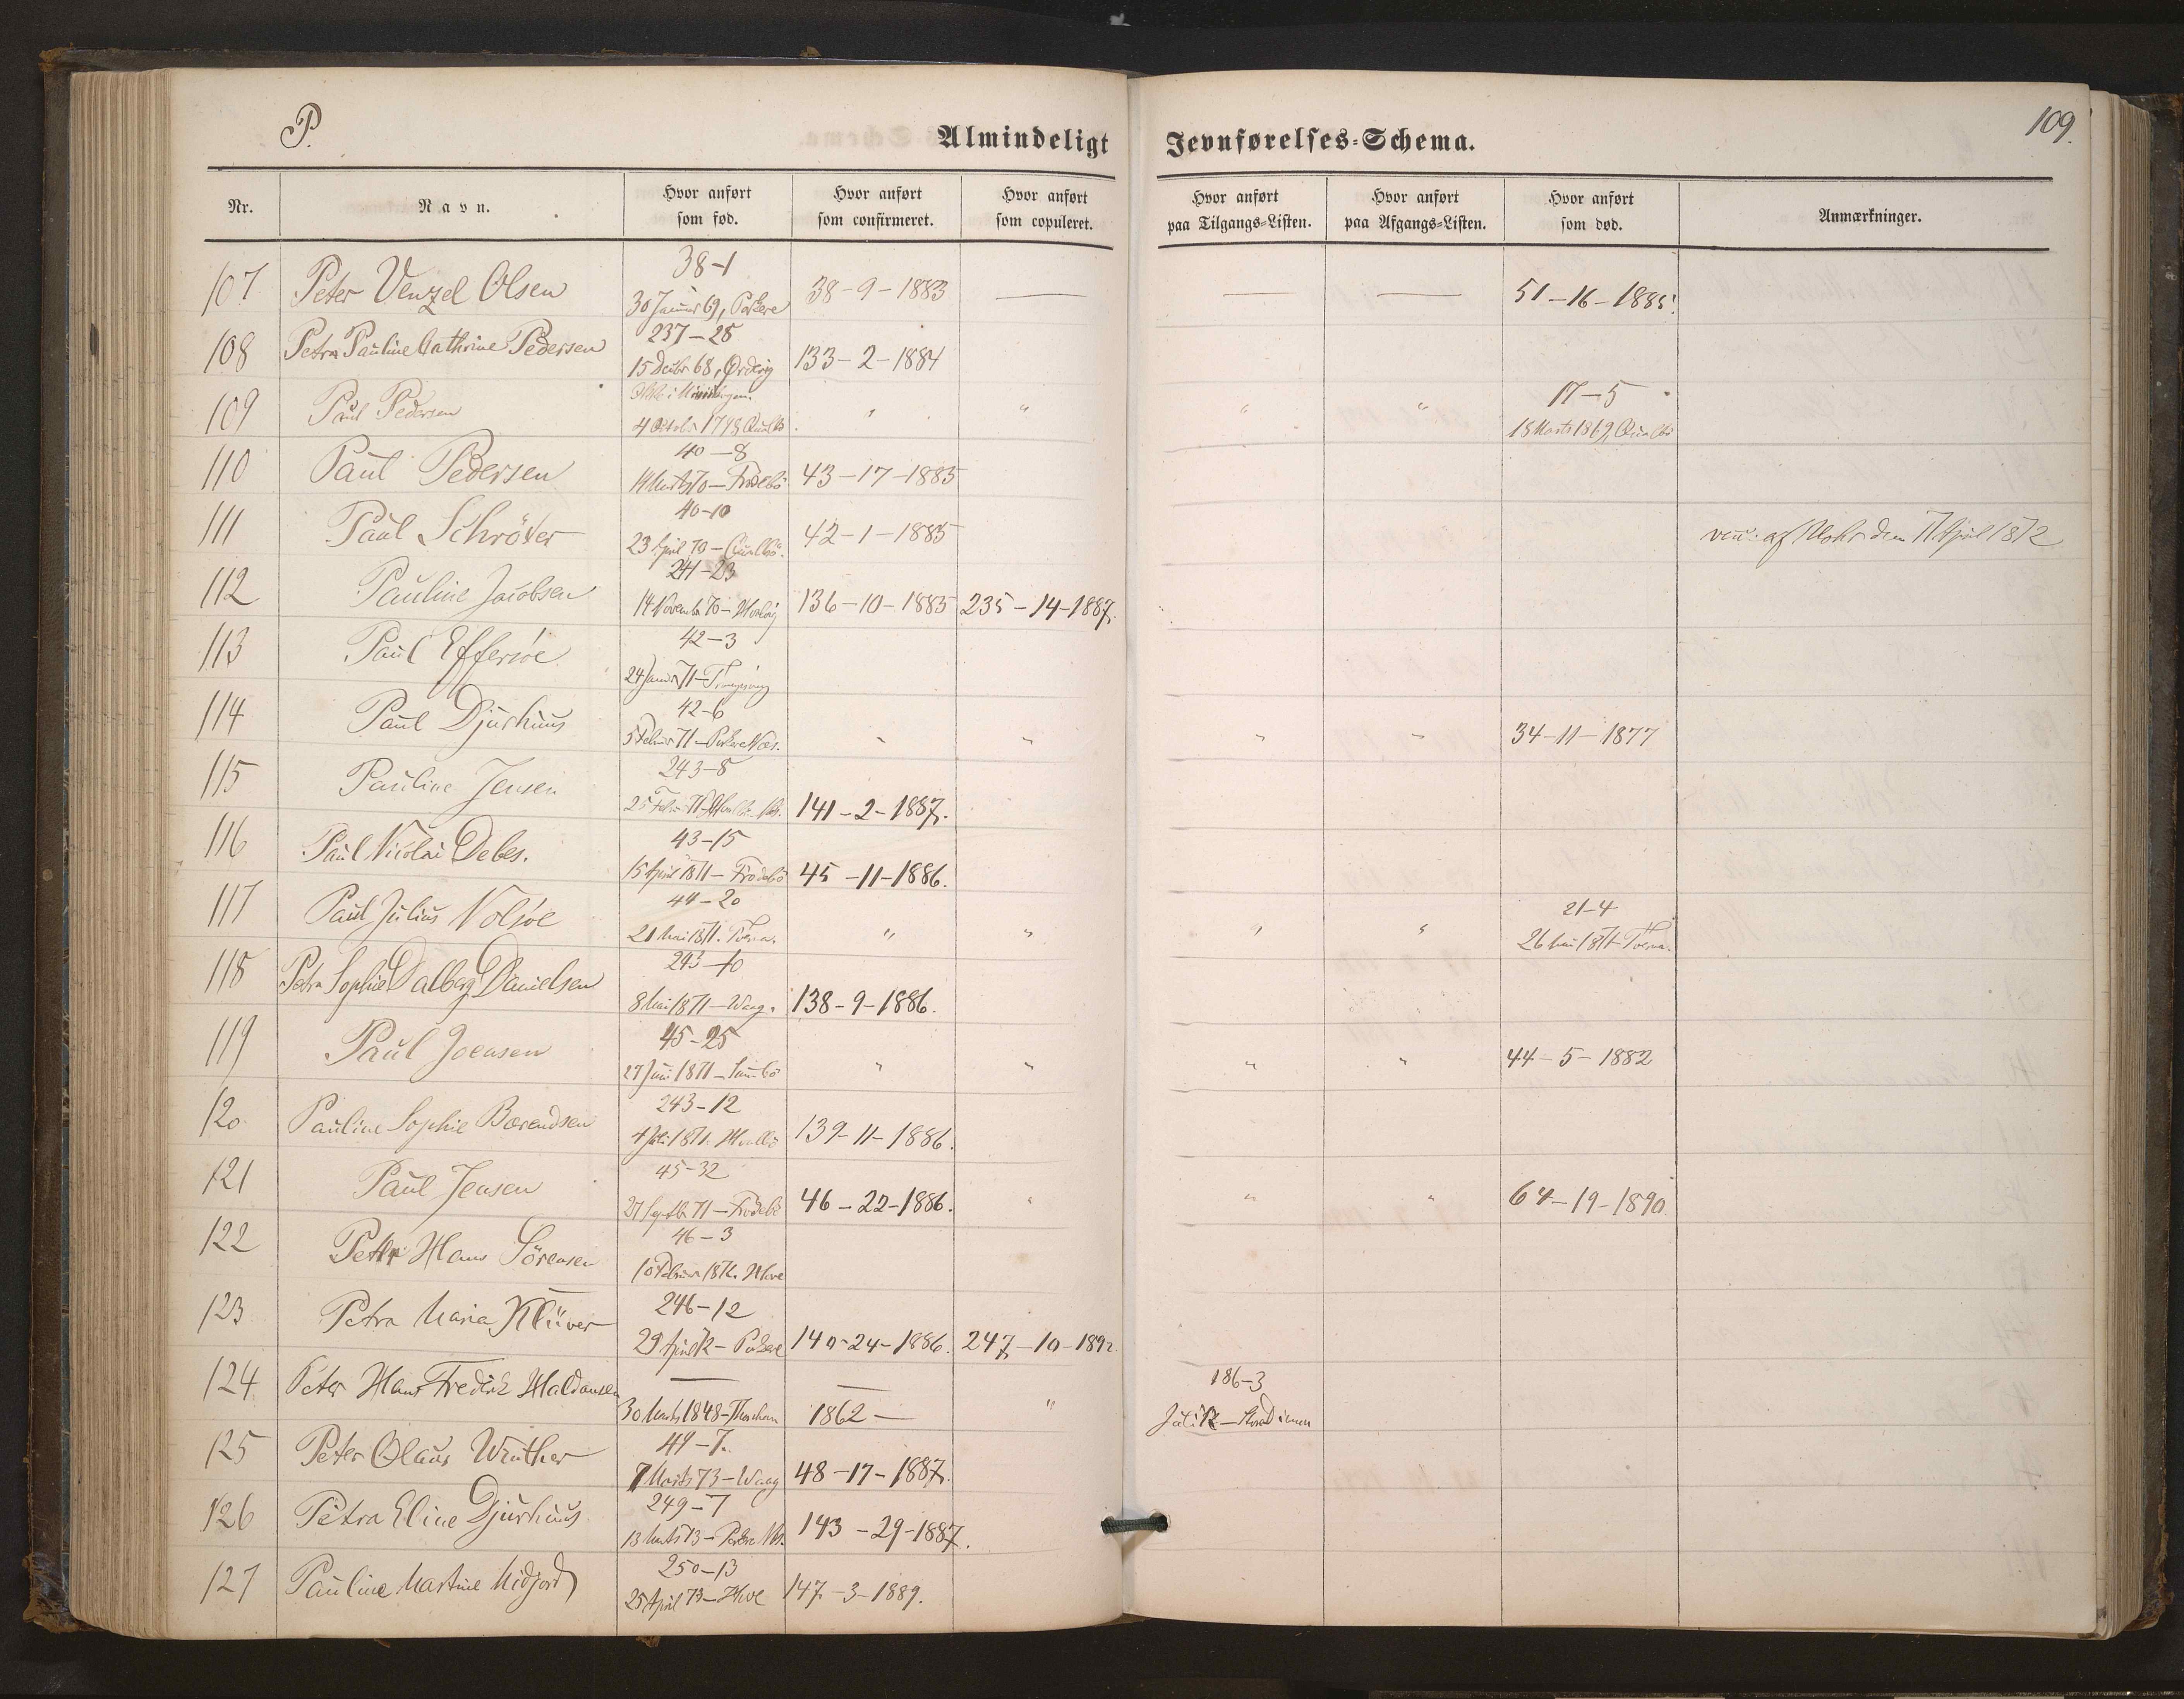 P.
109.
Almindeligt Jevnførelses-Schema.
Nr. Navn. Hvor anført som fød. Hvor anført som confirmeret. Hvor anført som copuleret. Hvor anført paa Tilgangs-Listen. Hvor anført paa Afgangs-Listen. Hvor anført som død. Anmærkninger.
38-1
107 Peter Venzel Olsen 38-9-1883 — — — 51-16-1885.
30 Januar 69, Porkere
237-28
108 Petra Pauline Cathrine Pedersen 133-2-1884
15 Decbr 68, Ørdevig
109 Paul Pedersen " " " " 17-5
4 October 1798 Qualbö. 18 Marts 1869, Qualbö
40-8
110 Paul Pedersen 43-17-1885
14 Marts 70 - Frodebö
40-10
111 Paul Schröter 42-1-1885 vacc. af Mohr den 17 April 1872
23 April 70 - Qualbö.
241-23
112 Pauline Jacobsen 136-10-1885 235-14-1887.
14 Novembr 70 - Hvalvig
42-3
113 Paul Effersöe
24 Januar 71 - Trangisvaag
42-6
114 Paul Djurhuus " " " " 34-11-1877
5 Februar 71 - Porkere Næs.
243-8
115 Pauline Jensen 141-2-1887.
25 Febr. 71
43-15
116 Paul Nicolai Debes. 45-11-1886.
15 April 1871 - Frodebö
44-20 21-4
117 Paul Julius Nolsöe " " " "
21 Mai 1871. Tveraa. 26 Mai 1871 Tveraa.
243-10
118 Petra Sophie Dalberg Danielsen 138-9-1886.
8 Mai 1871 - Waag.
45-25
119 Paul Joensen " " " " 44-5-1882
27 Juni 1871 - Sumbö
243-12
120 Pauline Sophie Bærendsen 139-11-1886.
4 Juli 1871. Hvalbö
45-32
121 Paul Jensen 46-22-1886. " " " 64-19-1890
27 Septbr 71 - Frodebö
46-3
122 Peter Hans Sörensen
10 Februar 1872. Hove
246-12
123 Petra Maria Klüver 140-24-1886. 247-10-1892
29 April 72 - Porkere
186-3
124 Peter Hans Fredrik Haldansen — — "
30 Marts 1848 - Thorshavn 1862 — Juli 72
49-7.
125 Peter Olaus Winther 48-17-1887.
7 Marts 73 - Waag
249-7
126 Petra Eline Djurhuus 143-29-1887.
13 Marts 73 - Porkere Næs.
250-13
127 Pauline Martine Midjord 147-3-1889.
25 April 73 - Hove